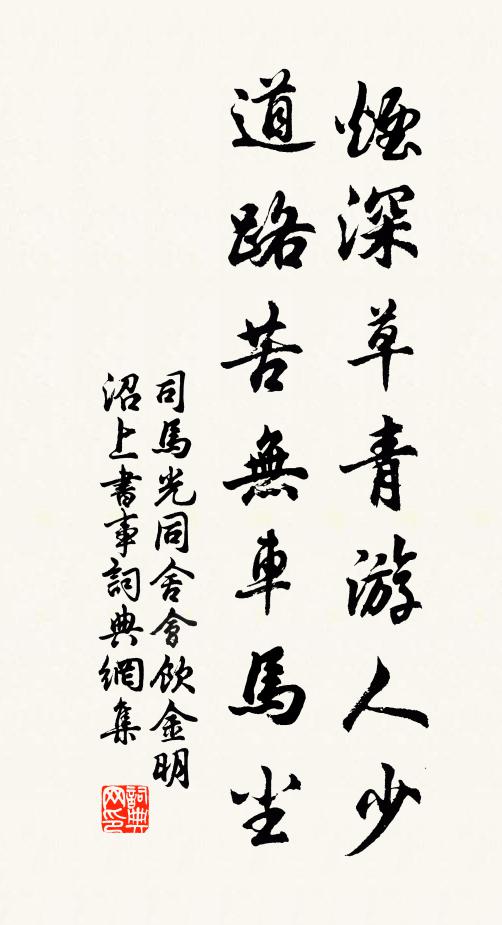 煙深草青游人少
道路苦無車馬尘
司馬光同舍會飲金明
沼上書事詞典網集
詞典网印